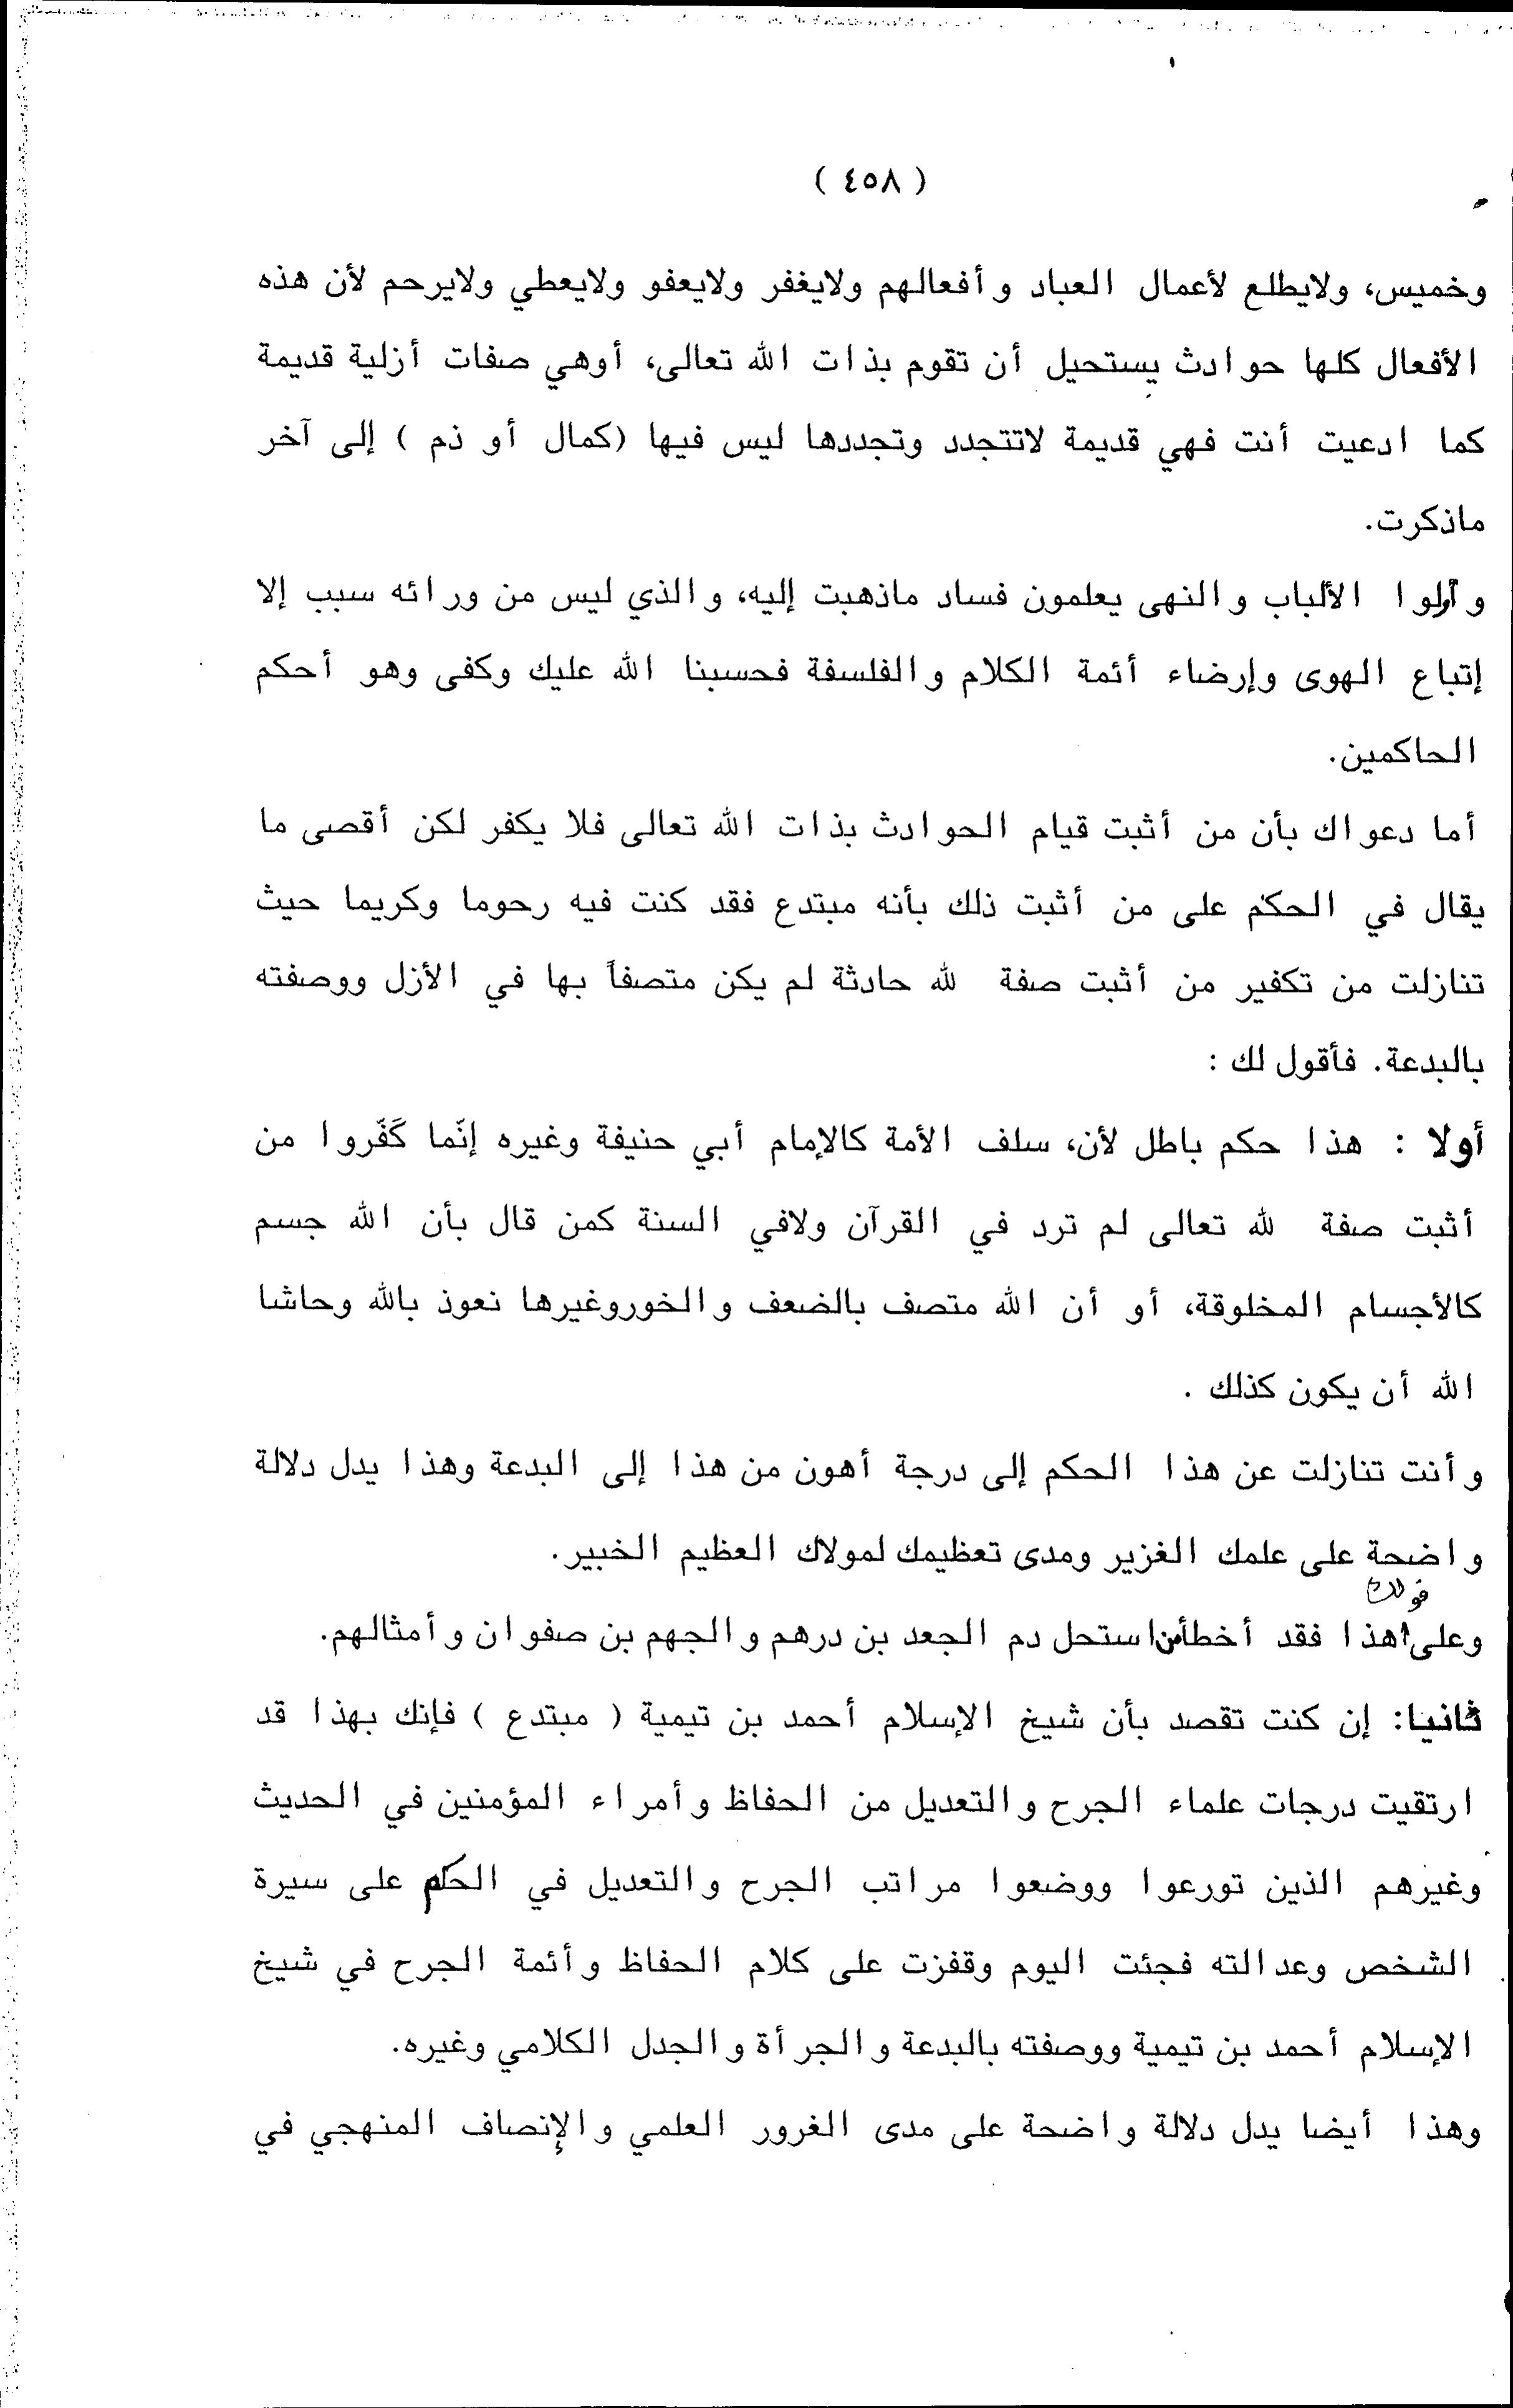 ( ٤٥٨ )
وخميس، ولايطلع لأعمال العباد وأفعالهم ولايغفر ولايعفو ولايعطي ولايرحم لأن هذه
الأفعال كلها حوادث يستحيل أن تقوم بذات الله تعالى، أوهي صفات أزلية قديمة
كما ادعيت أنت فهي قديمة لاتتجدد وتجددها ليس فيها (كمال أو ذم ) إلى آخر
ماذكرت.
وأولوا الألباب والنهى يعلمون فساد ماذهبت إليه، والذي ليس من ورائه سبب إلا
إتباع الهوى وإرضاء أئمة الكلام والفلسفة فحسبنا الله عليك وكفى وهو أحكم
الحاكمين.
أما دعواك بأن من أثبت قيام الحوادث بذات الله تعالى فلا يكفر لكن أقصى ما
يقال في الحكم على من أثبت ذلك بأنه مبتدع فقد كنت فيه رحوما وكريما حيث
تنازلت من تكفير من أثبت صفة لله حادثة لم يكن متصفاً بها في الأزل ووصفته
بالبدعة. فأقول لك :
أولا : هذا حكم باطل لأن، سلف الأمة كالإمام أبي حنيفة وغيره إنّما كَفّروا من
أثبت صفة لله تعالى لم ترد في القرآن ولافي السنة كمن قال بأن الله جسم
كالأجسام المخلوقة، أو أن الله متصف بالضعف والخوروغيرها نعوذ بالله وحاشا
الله أن يكون كذلك .
وأنت تنازلت عن هذا الحكم إلى درجة أهون من هذا إلى البدعة وهذا يدل دلالة
واضحة على علمك الغزير ومدى تعظيمك لمولاك العظيم الخبير.
وعلى قولك هذا فقد أخطأ من استحل دم الجعد بن درهم والجهم بن صفوان وأمثالهم.
ثانيا: إن كنت تقصد بأن شيخ الإسلام أحمد بن تيمية ( مبتدع ) فإنك بهذا قد
ارتقيت درجات علماء الجرح والتعديل من الحفاظ وأمراء المؤمنين في الحديث
وغيرهم الذين تورعوا ووضعوا مراتب الجرح والتعديل في الحكم على سيرة
الشخص وعدالته فجئت اليوم وقفزت على كلام الحفاظ وأئمة الجرح في شيخ
الإسلام أحمد بن تيمية ووصفته بالبدعة والجرأة والجدل الكلامي وغيره.
وهذا أيضا يدل دلالة واضحة على مدى الغرور العلمي والإنصاف المنهجي في